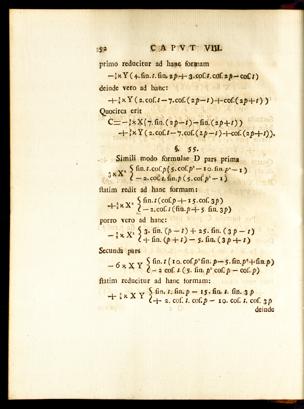 152 CAPVT VIII.
primo reducitur ad hanc formam
(4. sin. t. sin. 2p + 3. cos. t. cos. 2p − cos t)
deinde vero ad hanc:
(2. cos. t − 7. cos. (2p − t) + cos. (2p + t))
Quocirca erit
(7. sin. (2p − t) − sin. (2p + t))
(2. cos. t − 7. cos. (2p − t) + cos. (2p + t)).
§. 55.
Simili modo formulae D pars prima
sin. t. cos. p (5. cos. p² − 10. sin. p² − 1)
− 2. cos. t. sin. p (5. cos. p² − 1)
statim redit ad hanc formam:
sin. t (cos. p + 15. cos. 3p)
− 2. cos. t (sin. p + 5 sin. 3p)
porro vero ad hanc:
3. sin. (p − t) + 25. sin. (3p − t)
+ sin. (p + t) − 5. sin. (3p + t)
Secunda pars
− 6 x X Y sin. t (10. cos. p² sin. p − 5. sin. p³ + sin. p)
− 2 cos. t (5. sin. p² cos. p − cos. p)
statim reducitur ad hanc formam:
sin. t. sin. p − 15. sin. t. sin. 3p
+ 2. cos. t. cos. p − 10. cos. t. cos. 3p
deinde